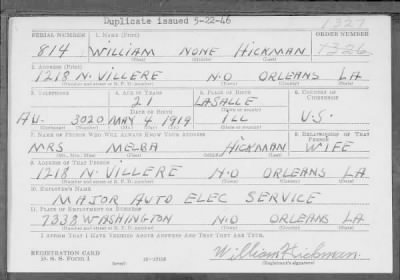 Duplicate issued 5-22-46
1327
SERIAL NUMBER 1. NAME (Print) ORDER NUMBER
814 WILLIAM NONE HICKMAN 1326
(First) (Middle) (Last)
2. ADDRESS (Print)
1218 N. VILLERE N.O ORLEANS LA
(Number and street or R. F. D. number) (Town) (County) (State)
3. TELEPHONE 4. AGE IN YEARS 5. PLACE OF BIRTH 6. COUNTRY OF CITIZENSHIP
21 LASALLE
DATE OF BIRTH (Town or county)
AU- 3020 MAY 4 1919 ILL U.S.
(Exchange) (Number) (Mo.) (Day) (Yr.) (State or country)
7. NAME OF PERSON WHO WILL ALWAYS KNOW YOUR ADDRESS 8. RELATIONSHIP OF THAT PERSON
MRS MELBA HICKMAN WIFE
(Mr., Mrs., Miss) (First) (Middle) (Last)
9. ADDRESS OF THAT PERSON
1218 N. VILLERE N.O ORLEANS LA
(Number and street or R. F. D. number) (Town) (County) (State)
10. EMPLOYER'S NAME
MAJOR AUTO ELEC SERVICE
11. PLACE OF EMPLOYMENT OR BUSINESS
7338 WASHINGTON N.O ORLEANS LA
(Number and street or R. F. D. number) (Town) (County) (State)
I AFFIRM THAT I HAVE VERIFIED ABOVE ANSWERS AND THAT THEY ARE TRUE.
REGISTRATION CARD
D. S. S. Form 1 William Hickman
(over) (Registrant's signature)